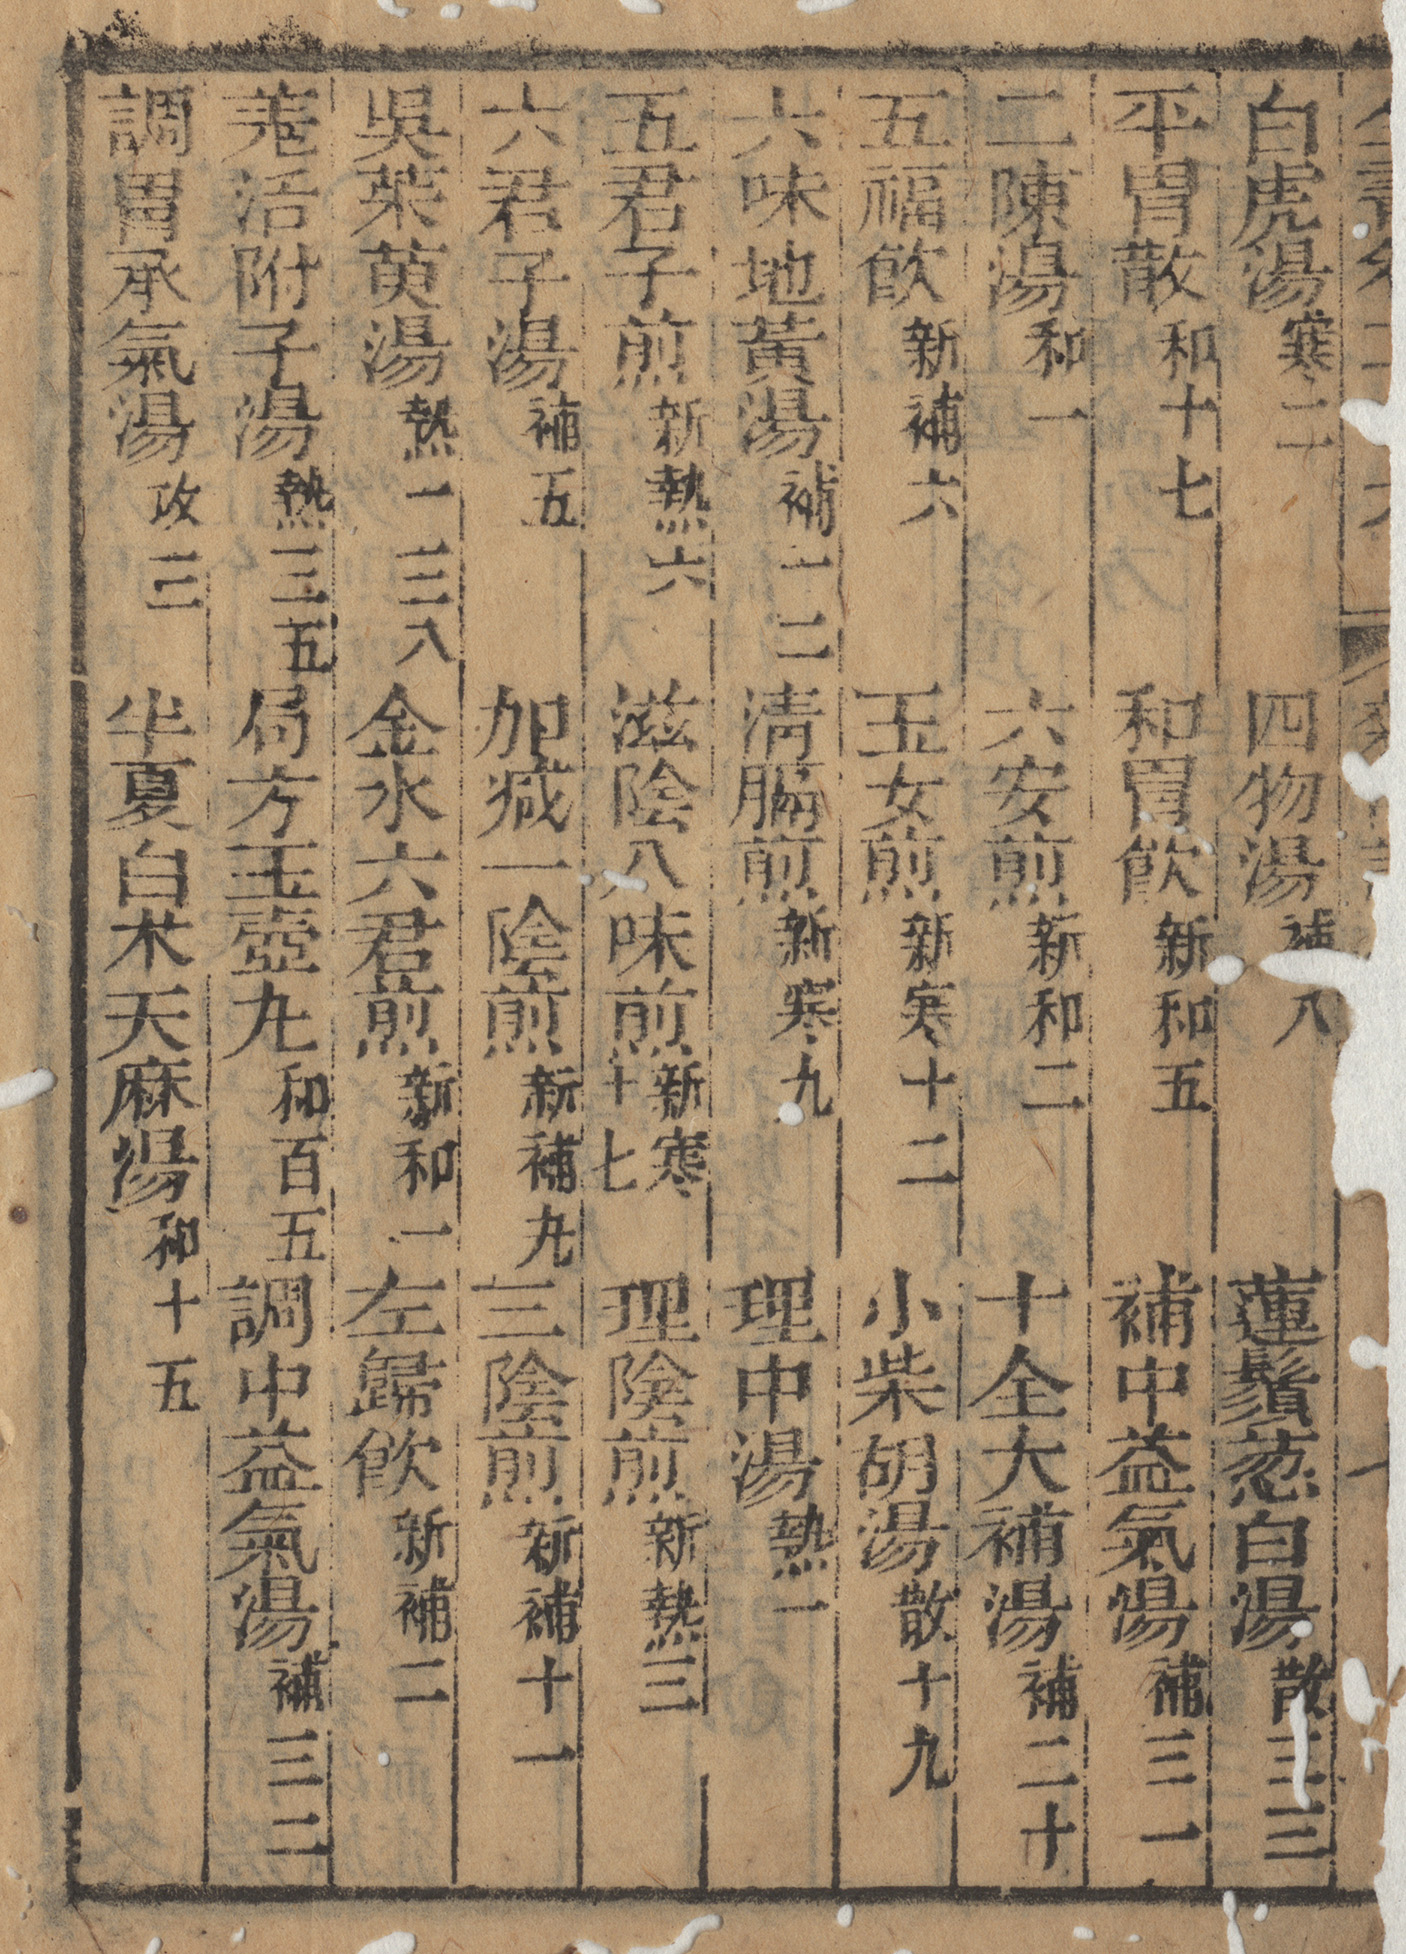 白虎湯寒二 四物湯補八 蓮鬚葱白湯散三三
平胃散和十七 和胃飲新和五 補中益氣湯補三一
二陳湯和一 六安煎新和二 十全大補湯補二十
五福飲新補六 玉女煎新寒十二 小柴胡湯散十九
六味地黃湯補一二 清膈煎新寒九 理中湯熱一
五君子煎新熱六 滋陰八味煎新寒十七 理陰煎新熱三
六君子湯補五 加減一陰煎新補九 三陰煎新補十一
吳茱萸湯熱一三八 金水六君煎新和一 左歸飲新補二
羌活附子湯熱三五 局方玉壺丸和百五 調中益氣湯補三二
調胃承氣湯攻三 半夏白朮天麻湯和十五